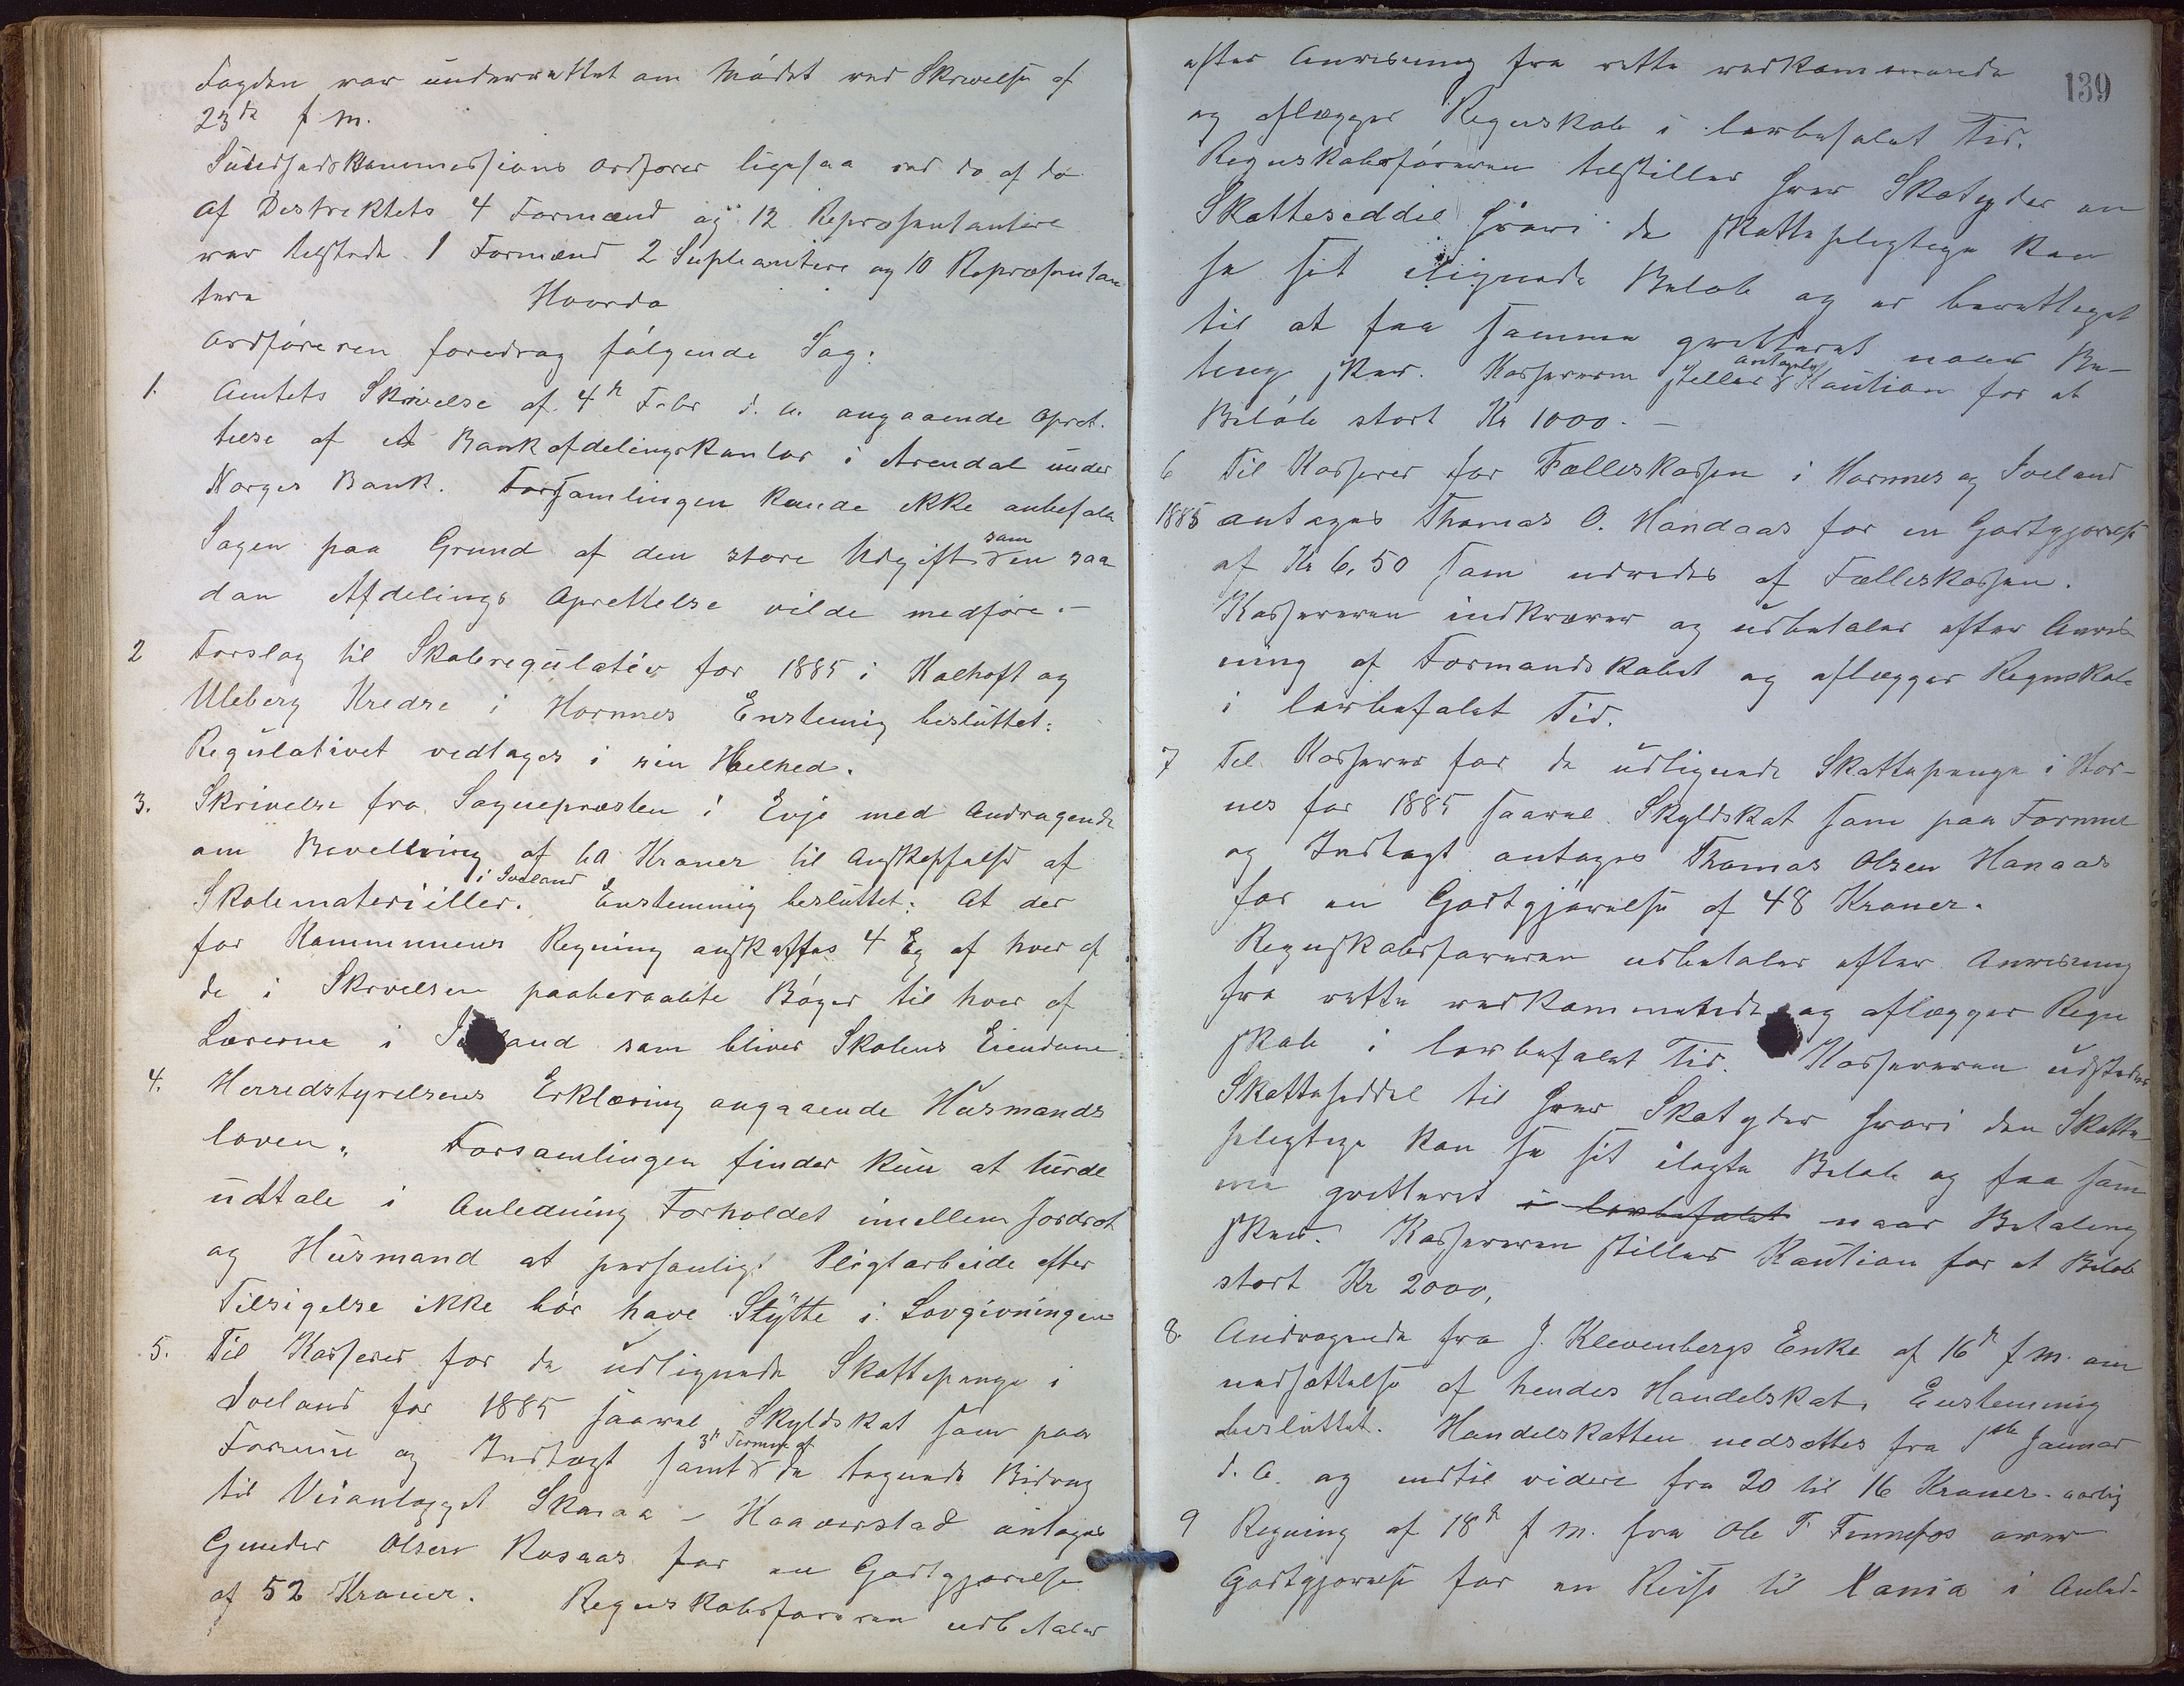 Fogden var underrettet om Mødet ved Skrivelse af
23de f M.
Sundhedskommissions Ordfører ligesaa ved do af do
Af Distriktets 4 Formænd og 12 Repræsentantere
var tilstede 1 Formænd 2 Supleantere og 10 Repræsentan
tere Hvorda
Ordføreren foredrog følgende Sag:
1. Amtets Skrivelse af 4de Febr d. A. angaaende Opret-
telse af et Bankafdelingskontor i Arendal under
Norges Bank. Forsamlingen kunde ikke anbefale
Sagen paa Grund af den store Udgift som en saa
dan Afdelings Oprettelse vilde medføre.-
2 Forslag til Skoleregulativ for 1885 i Kalhoft og
Uleberg Kredse i Hornnes Enstemig besluttet:
Regulativet vedtages i sin Helhed.
3. Skrivelse fra Sognepræsten i Evje med Andragende
om Bevellving af 60 Kroner til Anskaffelse af
Skolemateriiller i Iveland. Enstemmig besluttet: At der
for Kommunens Regning anskaffes 4 Eg af hver af
de i Skrivelsen paaberaabte Bøger til hver af
Lærerne i Iveland som bliver Skolens Eiendom.
4. Herredstyrelsens Erklæring angaaende Husmands
loven. Forsamlingen finder kun at burde
udtale i Anledning Forholdet imellem Jordrot
og Husmand at personligt Pligtarbeide efter
Tilsigelse ikke bør have Støtte i Lovgivningen
5. Til Kasserer for de udlignede Skattepenge i
Iveland for 1885 saavel Skyldskat som paa
Formue og Indtægt samt 3die Termin af de tegnede Bidrag
til Veianlægget Skaiaa - Haaverstad antages
Gunder Olsen Rosaas for en Godtgjørelse
af 52 Kroner. Regnskabsføreren udbetaler
139
efter Anvisning fra rette vedkommende
og aflægger Regnskab i lovbefalet Tid.
Regnskabsføreren tilstiller hver Skatyder en
Skatteseddel hvori de skattepligtige kan
se sit ilignede Beløb og er berettiget
til at faa samme qvitteret naar Be-
teng sker. Kassereren stiller antagelig Kaution for et
Beløb stort Kr 1000.-
6 Til Kasserer for Fælleskassen i Hornnes og Iveland
1885 antages Thomas O. Handaas for en Godtgjørelse
af Kr 6,50 som udredes af Fælleskassen.
Kassereren indkræver og udbetaler efter Anvis
ning af Formandskabet og aflægger Regnskab
i lovbefalet Tid.
7 Til Kasserer for de udlignede Skattepenge i Hor-
nes for 1885 saavel Skyldskat som paa Formue
og Indtægt antages Thomas Olsen Hanaas
for en Godtgjørelse af 48 Kroner.
Regnskabsføreren udbetaler efter Anvisning
fra rette vedkommende og aflægger Regn
skab i lovbefalet Tid. Kassereren udsteder
Skatteseddel til hver Skatyder hvori den Skatte
pligtige kan se sit ilagte Beløb og faa sam
me qvitteret i lovbefalet naar Betaling
sker. Kassereren stiller Kaution for et Beløb
stort Kr 2000,
8. Andragende fra J. Klevenbergs Enke af 16de f M. om
nedsættelse af hendes Handelskat. Enstemmig
besluttet. Handelskatten nedsættes fra 1ste Januar
d. A. og indtil videre fra 20 til 16 Kroner aarlig
9 Regning af 18de f M. fra Ole T Fennefos over
Godtgjørelse for en Reise til Xania i Anled-